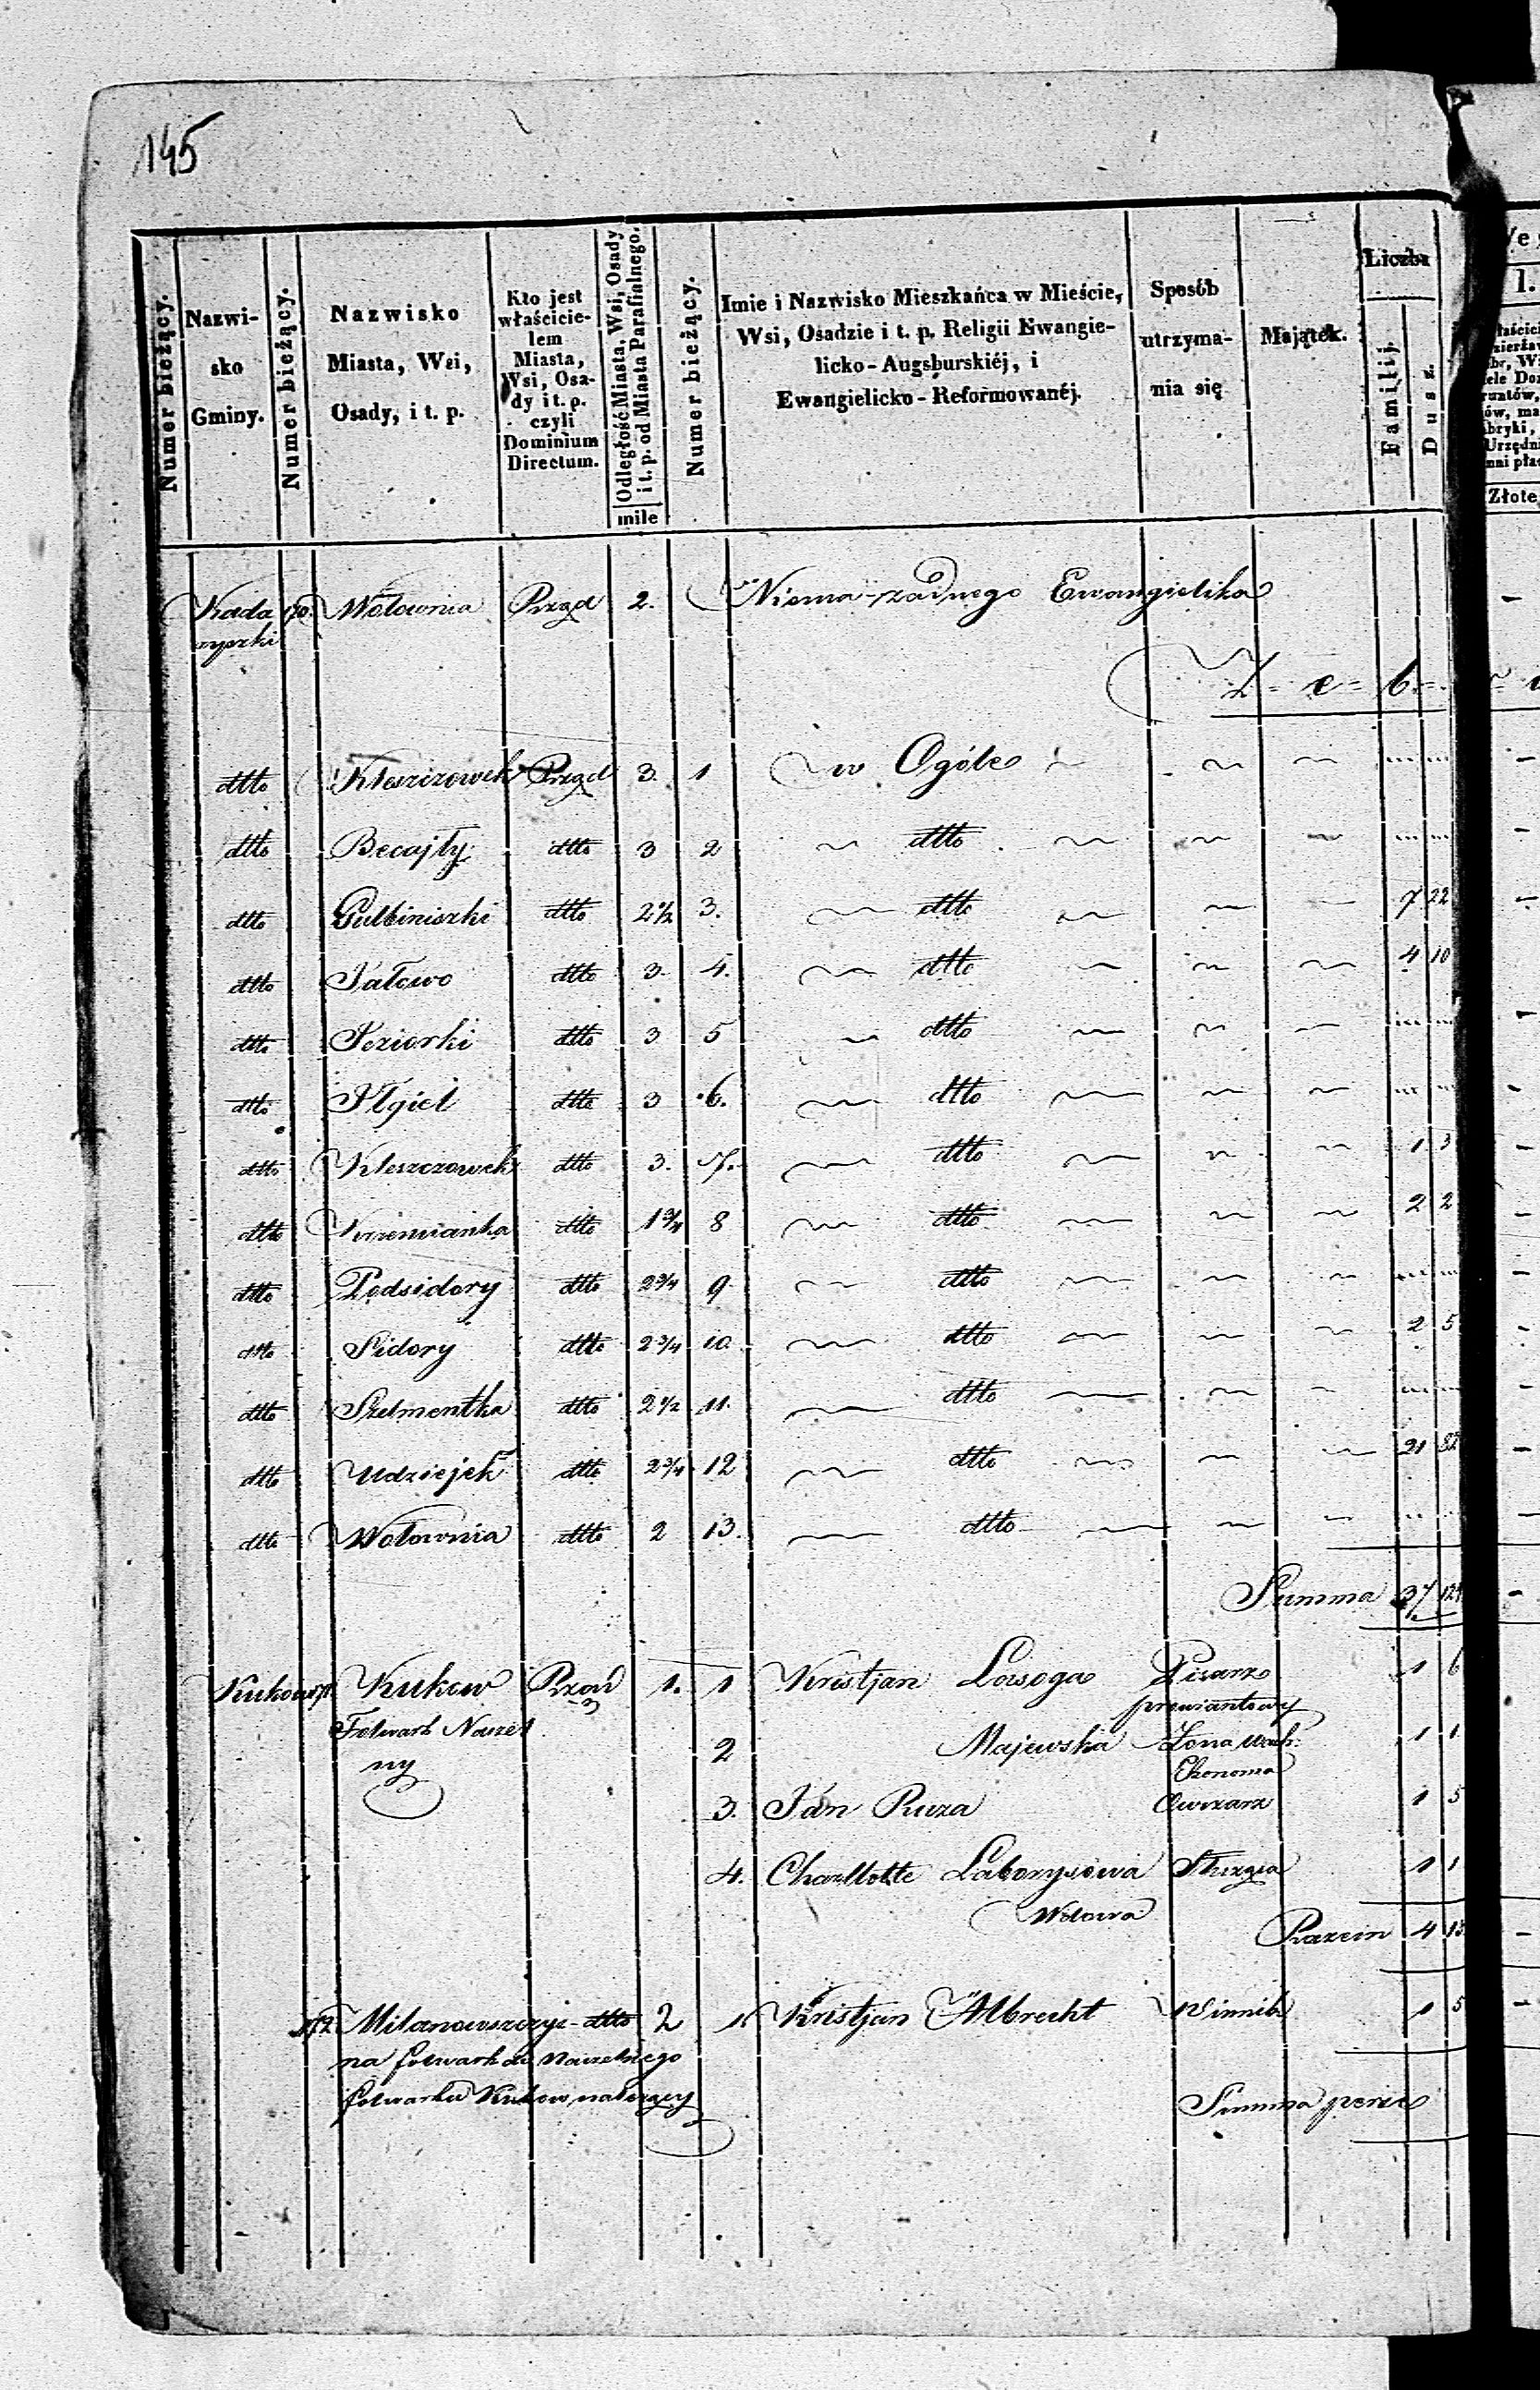 145
Numer bieżący.
Nazwisko Gminy.
Numer bieżący.
Nazwisko Miasta, Wsi, Osady, i t. p.
Kto jest właścicielem Miasta, Wsi, Osady i t. p. czyli Dominium Directum.
Odległość Miasta, Wsi, Osady i t. p. od Miasta Parafialnego. mile
Numer bieżący.
Imie i Nazwisko Mieszkańca w Mieście, Wsi, Osadzie i t. p. Religii Ewangielicko-Augsburskiéj, i Ewangielicko-Reformowanéj.
Sposób utrzymania się
Majątek.
Liczba
Familij.
Dusz.
Złote
Kadaryszki 170. Wołownia Rząd 2. Niema żadnego Ewangielika
L = e = b =
dtto Kleszczowek Rząd 3. 1 w Ogóle
dtto Becajły dtto 3 2 dtto
dtto Gulbiniszki dtto 2 1/2 3. dtto 7 22
dtto Jałowo dtto 3. 4. dtto 4 10
dtto Jeziorki dtto 3 5 dtto
dtto Ilgiel dtto 3 6. dtto
dtto Kleszczowek dtto 3. 7. dtto 1 3
dtto Krzemianka dtto 1 3/4 8 dtto 2 2
dtto Podsidory dtto 2 3/4 9 dtto
dtto Sidory dtto 2 3/4 10. dtto 2 5
dtto Szelmentka dtto 2 1/2 11. dtto
dtto Udziejek dtto 2 3/4 12 dtto 21 82
dtto Wołownia dtto 2 13. dtto
Summa 37 124
Kukow 171. Kukow Rząd 1. 1 Kristjan Lasoga Pisarz 1 6
prowiantowy
Folwark Naczel
ny
2 Majewska Żona 1 1
Ekonoma
3. Jan Puza Owczarz 1 5
4. Charllotte Laborysowa Służąca 1 1
Wdowa
Razem 4 13
172 Milanowszczyz- dtto 2 1 Kristjan Albrecht Winnik 1 5
na folwark do Naczelnego
folwarku Kukow należący
Summa